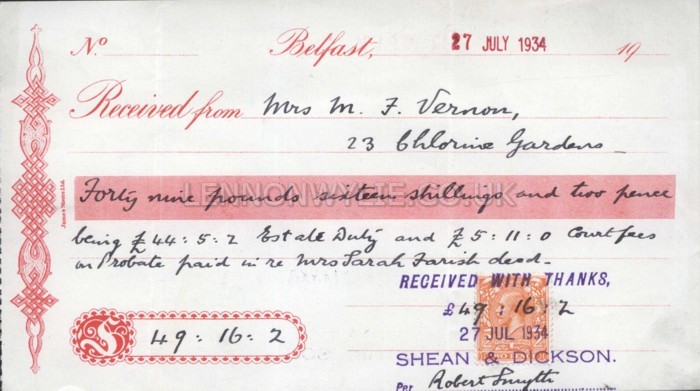 No. Belfast, 27 JULY 1934 19
Received from Mrs M. F. Vernon,
23 Chlorine Gardens
Forty nine pounds sixteen shillings and two pence
LENNONWYLIE.CO.UK
James Waters Ltd.
being £44:5:2 Estate Duty and £5:11:0 Court fees
on Probate paid in re Mrs Sarah Farish decd.
RECEIVED WITH THANKS,
£49:16:2
£ 49:16:2
27 JUL 1934
SHEAN & DICKSON.
Per Robert Smyth